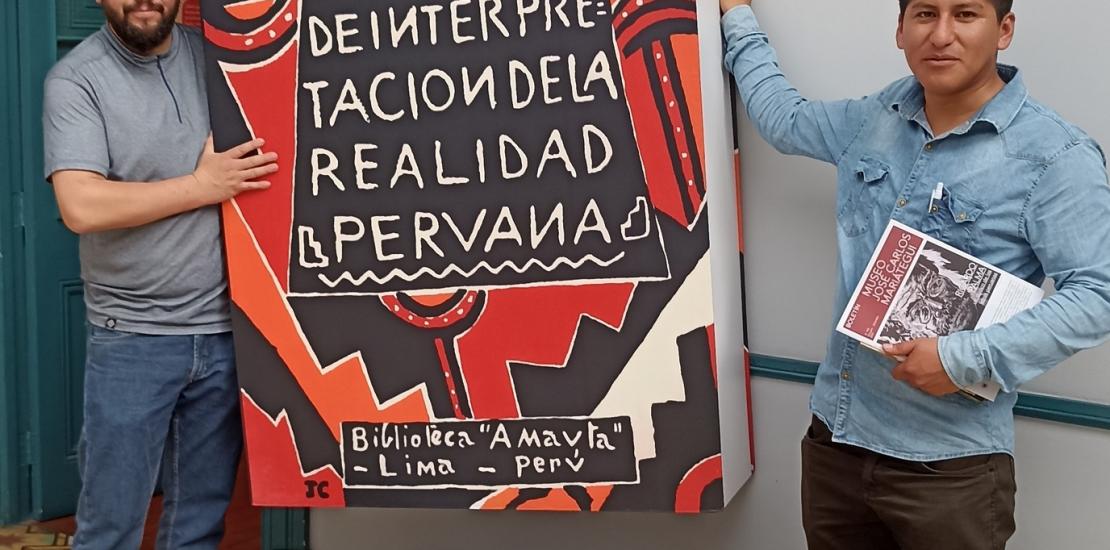 DE INTERPRE=
TACION DE LA
REALIDAD
PERVANA
Biblioteca "Amavta"
- Lima - perú
JC
BOLETÍN
MUSEO
JOSÉ CARLOS
MARIÁTEGUI
RICARDO
PALMA